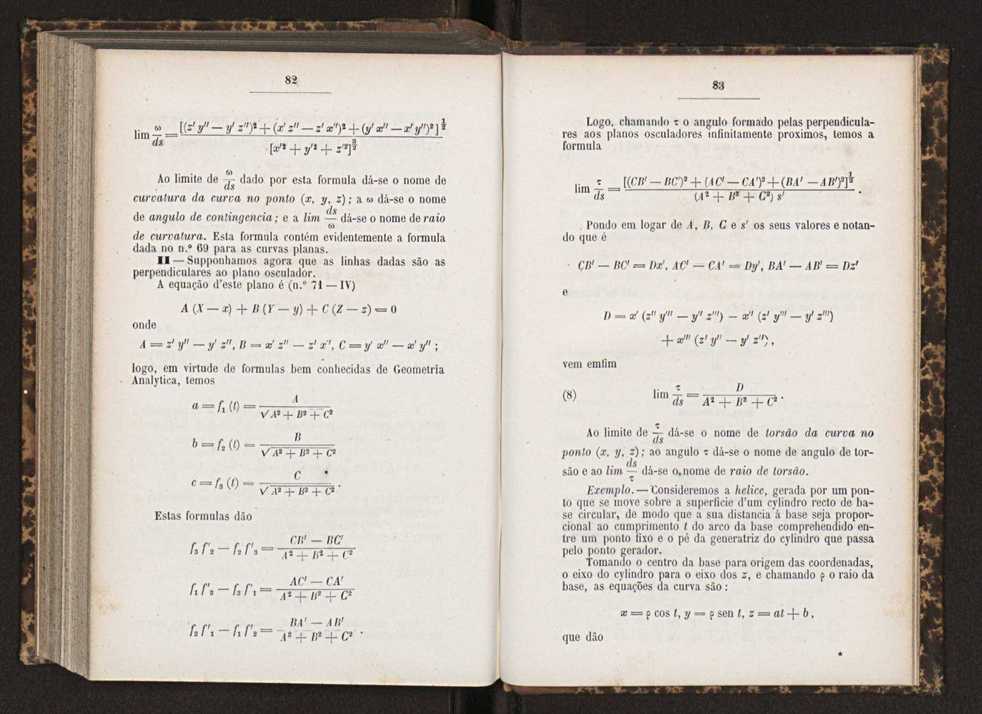 82
lim ω/ds = [(z' y'' — y' z'')² + (x' z'' — z' x'')² + (y' x'' — x' y'')²]^½ / [x'² + y'² + z'²]^{3/2}
Ao limite de ω/ds dado por esta formula dá-se o nome de
curvatura da curva no ponto (x, y, z); a ω dá-se o nome
de angulo de contingencia; e a lim ds/ω dá-se o nome de raio
de curvatura. Esta formula contém evidentemente a formula
dada no n.º 69 para as curvas planas.
II — Supponhamos agora que as linhas dadas são as
perpendiculares ao plano osculador.
A equação d'este plano é (n.º 71 — IV)
A (X — x) + B (Y — y) + C (Z — z) = 0
onde
A = z' y'' — y' z'', B = x' z'' — z' x'', C = y' x'' — x' y'' ;
logo, em virtude de formulas bem conhecidas de Geometria
Analytica, temos
a = f₁ (t) = A / √A² + B² + C²
b = f₂ (t) = B / √A² + B² + C²
c = f₃ (t) = C / √A² + B² + C² .
Estas formulas dão
f₃ f'₂ — f₂ f'₃ = CB' — BC' / A² + B² + C²
f₁ f'₃ — f₃ f'₁ = AC' — CA' / A² + B² + C²
f₂ f'₁ — f₁ f'₂ = BA' — AB' / A² + B² + C² .
83
Logo, chamando τ o angulo formado pelas perpendicula-
res aos planos osculadores infinitamente proximos, temos a
formula
lim τ/ds = [(CB' — BC')² + (AC' — CA')² + (BA' — AB')²]^½ / (A² + B² + C²) s' .
Pondo em logar de A, B, C e s' os seus valores e notan-
do que é
CB' — BC' = Dx', AC' — CA' = Dy', BA' — AB' = Dz'
e
D = x' (z'' y''' — y'' z''') — x'' (z' y''' — y' z''')
+ x''' (z' y'' — y' z''),
vem emfim
(8) lim τ/ds = D / A² + B² + C² .
Ao limite de τ/ds dá-se o nome de torsão da curva no
ponto (x, y, z); ao angulo τ dá-se o nome de angulo de tor-
são e ao lim ds/τ dá-se o nome de raio de torsão.
Exemplo. — Consideremos a helice, gerada por um pon-
to que se move sobre a superficie d'um cylindro recto de ba-
se circular, de modo que a sua distancia à base seja propor-
cional ao cumprimento t do arco da base comprehendido en-
tre um ponto fixo e o pé da generatriz do cylindro que passa
pelo ponto gerador.
Tomando o centro da base para origem das coordenadas,
o eixo do cylindro para o eixo dos z, e chamando ρ o raio da
base, as equações da curva são :
x = ρ cos t, y = ρ sen t, z = at + b ,
que dão
*